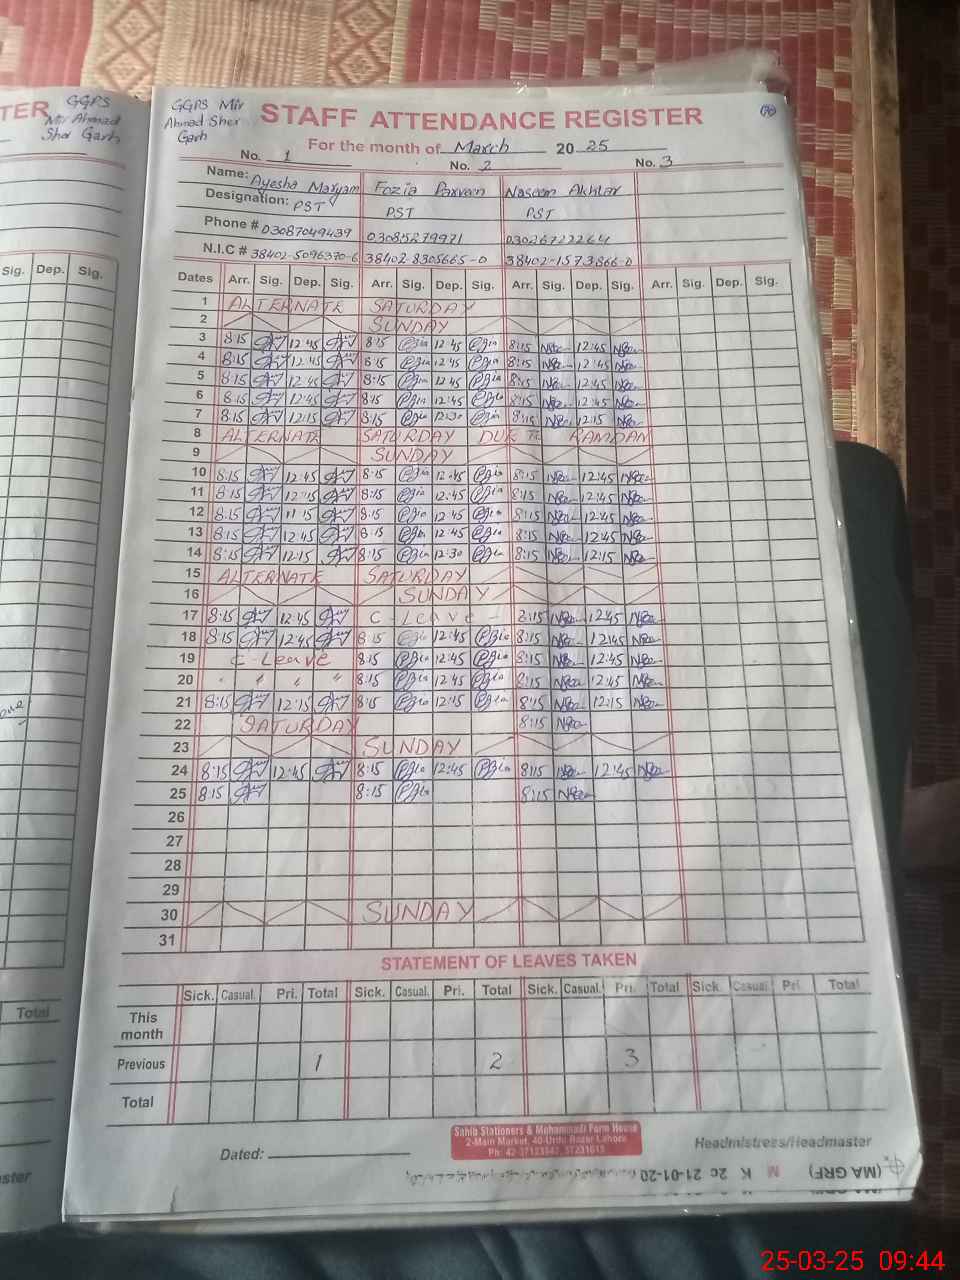 TER GGPS
Mir Ahmad
Sher Garh
GGPS Mir
Ahmad Sher
Garh
STAFF ATTENDANCE REGISTER
For the month of March 20 25
No. 1 No. 2 No. 3
Name: Ayesha Maryam Fozia Parveen Naseem Akhtar
Designation: PST PST PST
Phone # 03087049439 03085279971 03026722264
N.I.C # 38402-5096370-6 38402-8305665-0 38402-1573866-0
Sig. Dep. Sig.
Dates Arr. Sig. Dep. Sig. Arr. Sig. Dep. Sig. Arr. Sig. Dep. Sig. Arr. Sig. Dep. Sig.
1 ALTERNATE SATURDAY
2 SUNDAY
3 8:15 12:45 8:15 12:45 8:15 12:45
4 8:15 12:45 8:15 12:45 8:15 12:45
5 8:15 12:45 8:15 12:45 8:15 12:45
6 8:15 12:45 8:15 12:45 8:15 12:45
7 8:15 12:15 8:15 12:30 8:15 12:15
8 ALTERNATE SATURDAY DUE To RAMDAN
9 SUNDAY
10 8:15 12:45 8:15 12:45 8:15 12:45
11 8:15 8:15 12:45 8:15 12:45
12 8:15 11:15 8:15 12:45 8:15 12:45
13 8:15 12:45 8:15 12:45 8:15 12:45
14 8:15 12:15 8:15 12:30 8:15 12:15
15 ALTERNATE SATURDAY
16 SUNDAY
17 8:15 12:45 C - Leave - 8:15 12:45
18 8:15 12:45 8:15 12:45 8:15 12:45
19 C - Leave 8:15 12:45 8:15 12:45
20 " " " " 8:15 12:45 8:15 12:45
21 8:15 12:15 8:15 12:15 8:15 12:15
22 SATURDAY 8:15
23 SUNDAY
24 8:15 12:45 8:15 12:45 8:15 12:45
25 8:15 8:15 8:15
26
27
28
29
30 SUNDAY
31
STATEMENT OF LEAVES TAKEN
Sick. Casual. Pri. Total Sick. Casual. Pri. Total Sick. Casual. Pri. Total Sick. Casual Pri. Total
Total
This
month
Previous 1 2 3
Total
Sahib Stationers & Mohammadi Form House
2-Main Market, 40-Urdu Bazar Lahore
Ph: 42-37123542, 37231615
Dated: Headmistress/Headmaster
ster
(MA GRF) M K 2c 21-01-20
25-03-25 09:44